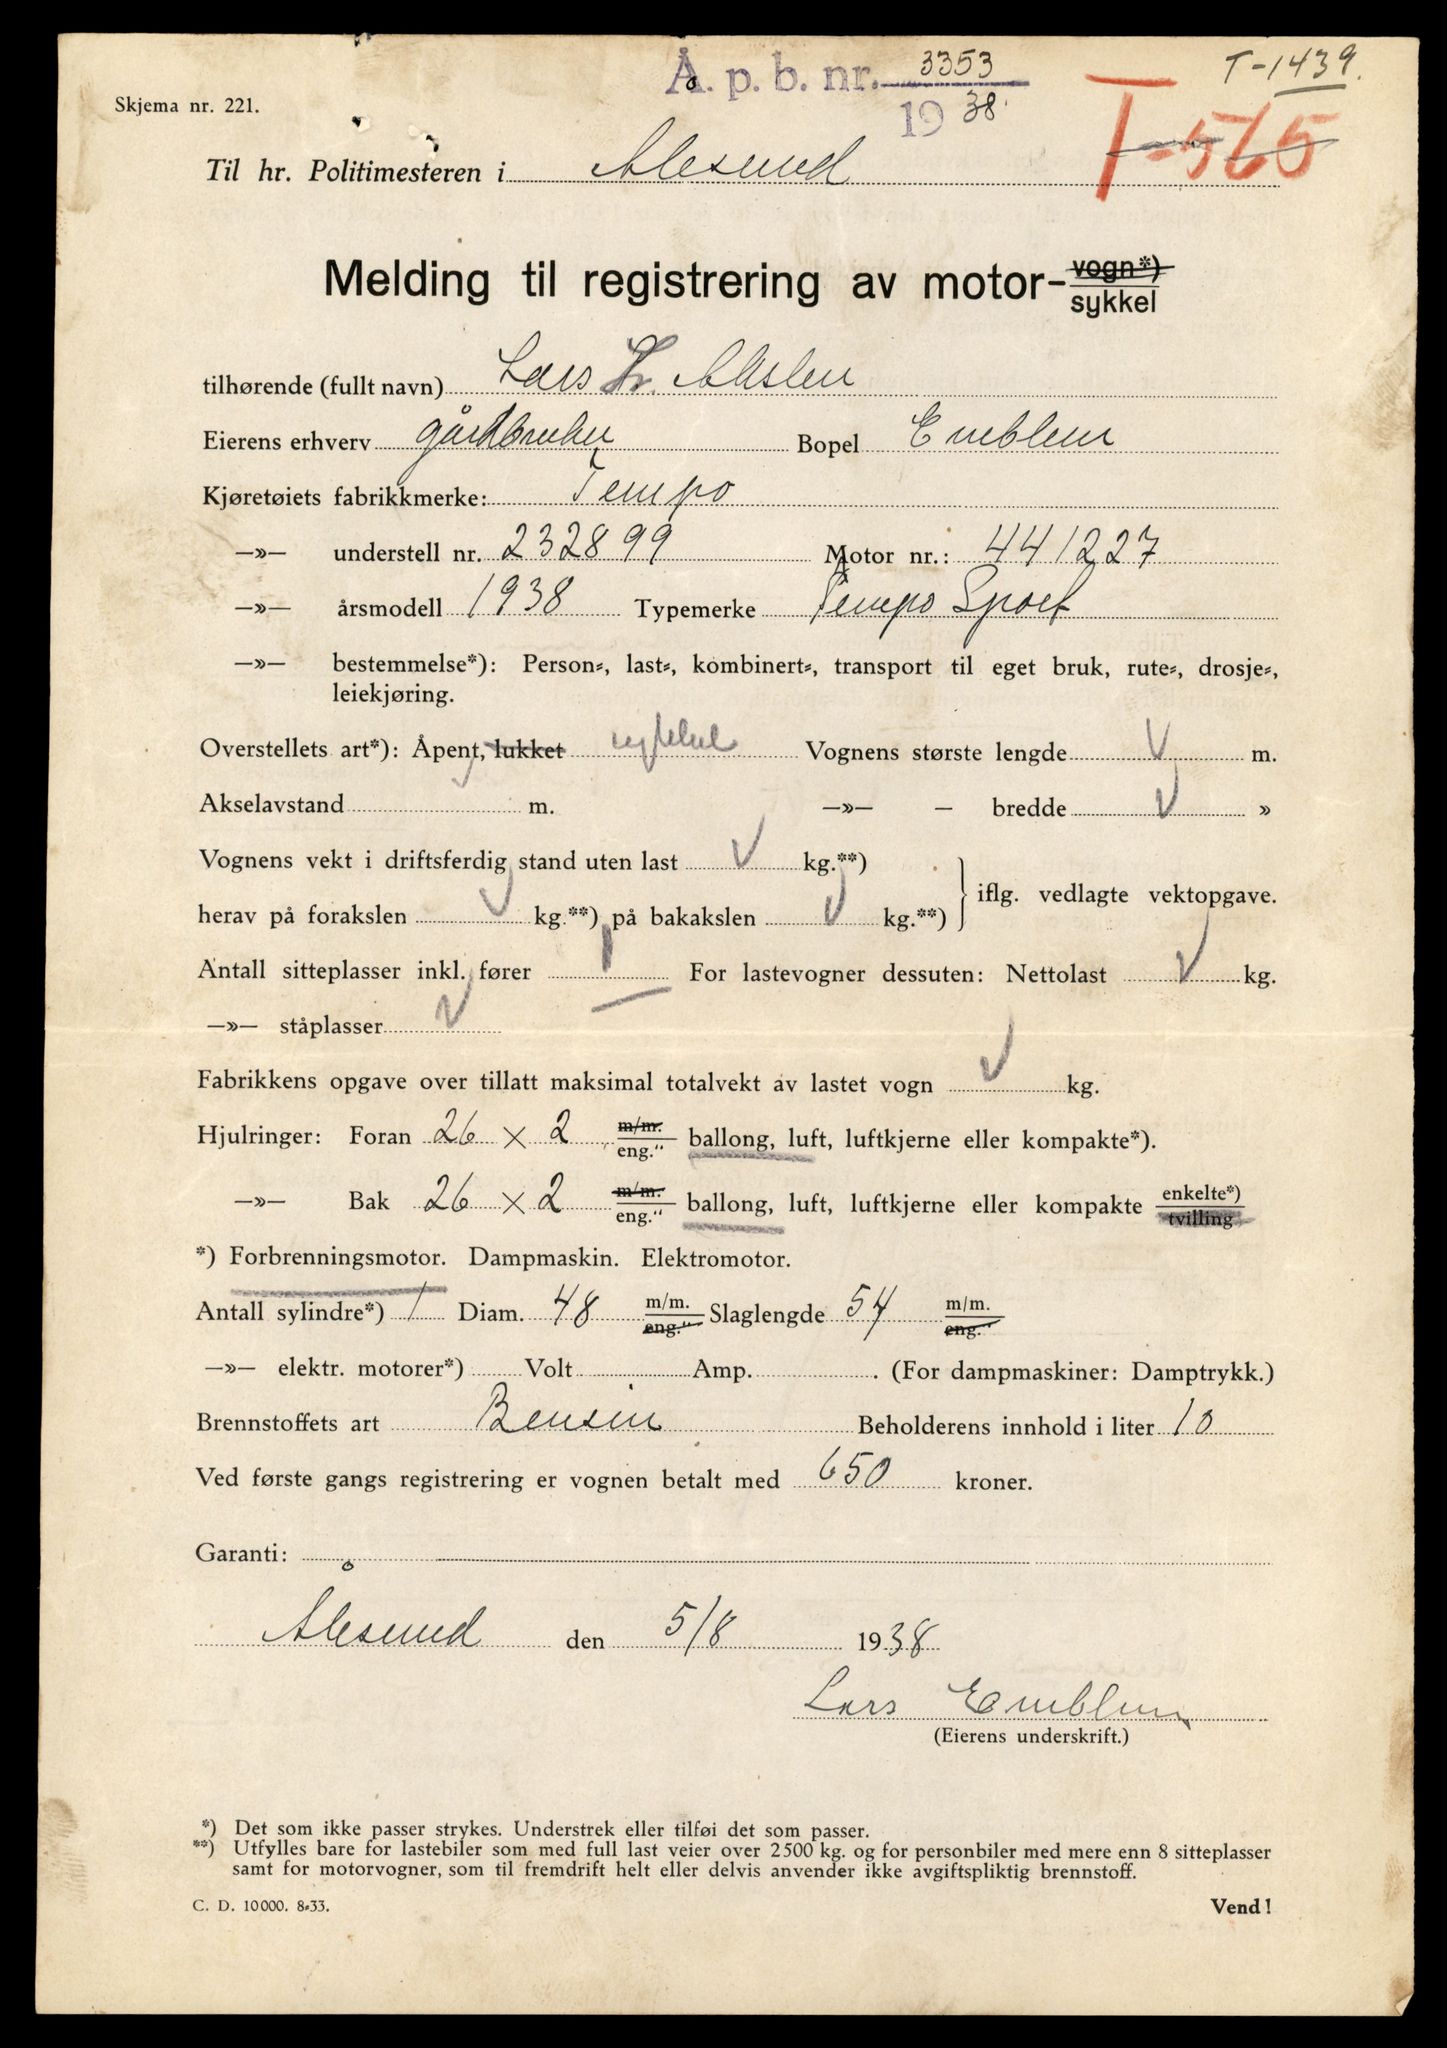 Å. p. b. nr. 3353
1938.
T-1439.
T-565
Skjema nr. 221.
Til hr. Politimesteren i Ålesund
Melding til registrering av motor- vogn*)
sykkel
tilhørende (fullt navn) Lars Kr. Akslen
Eierens erhverv gårdbruker Bopel Emblem
Kjøretøiets fabrikkmerke: Tempo
—»— understell nr. 232899 Motor nr.: 441227
—»— årsmodell 1938 Typemerke Tempo Sport
—»— bestemmelse*): Person-, last-, kombinert-, transport til eget bruk, rute-, drosje-,
leiekjøring.
Overstellets art*): Åpent, lukket sykkel Vognens største lengde m.
Akselavstand m. —»— — bredde »
Vognens vekt i driftsferdig stand uten last kg.**)
herav på forakslen kg.**) på bakakslen kg.**) iflg. vedlagte vektopgave.
Antall sitteplasser inkl. fører 1 For lastevogner dessuten: Nettolast kg.
—»— ståplasser
Fabrikkens opgave over tillatt maksimal totalvekt av lastet vogn kg.
Hjulringer: Foran 26 × 2 m/m. eng." ballong, luft, luftkjerne eller kompakte*).
—»— Bak 26 × 2 m/m. eng." ballong, luft, luftkjerne eller kompakte enkelte*) tvilling
*) Forbrenningsmotor. Dampmaskin. Elektromotor.
Antall sylindre*) 1 Diam. 48 m/m. eng." Slaglengde 54 m/m. eng."
—»— elektr. motorer*) Volt Amp. . (For dampmaskiner: Damptrykk.)
Brennstoffets art Bensin Beholderens innhold i liter 10
Ved første gangs registrering er vognen betalt med 650 kroner.
Garanti:
Ålesund den 5/8 1938
Lars Emblem
(Eierens underskrift.)
*) Det som ikke passer strykes. Understrek eller tilføi det som passer.
**) Utfylles bare for lastebiler som med full last veier over 2500 kg. og for personbiler med mere enn 8 sitteplasser
samt for motorvogner, som til fremdrift helt eller delvis anvender ikke avgiftspliktig brennstoff.
C. D. 10000. 8-33.
Vend!